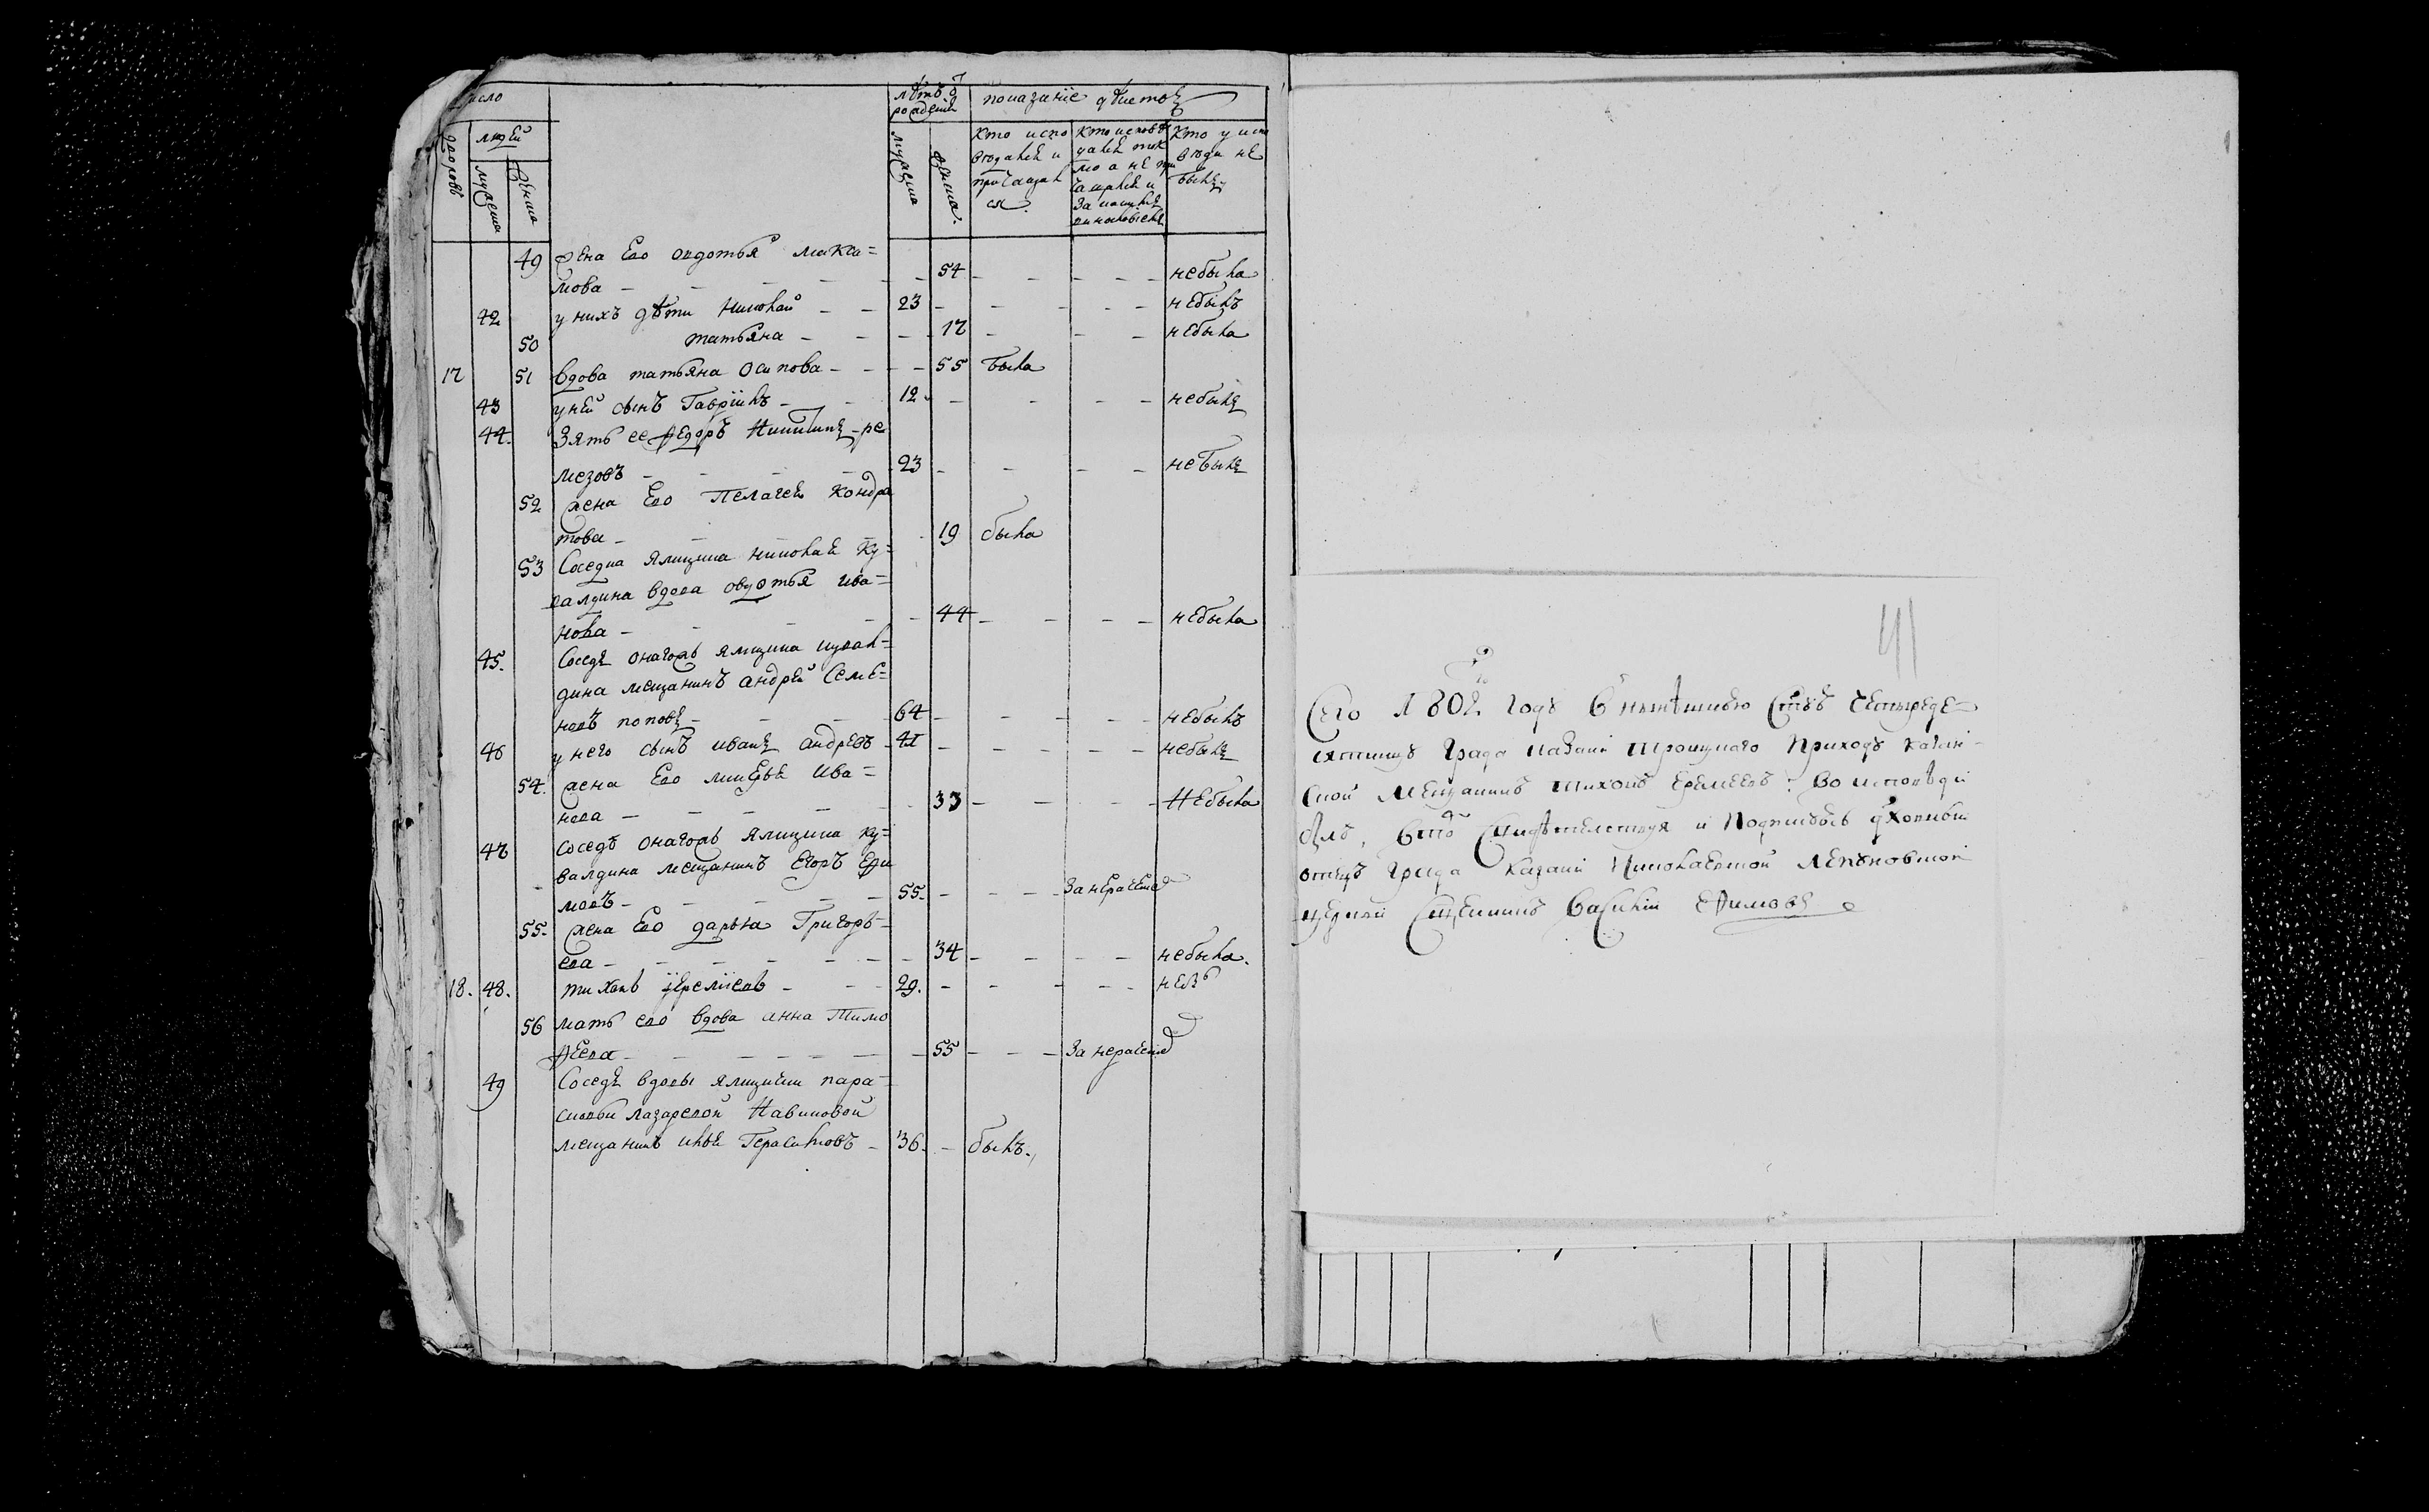 число
лѣтъ ѿ рожденїя
показанїе дѣиство
дворовъ
людей
мужеска
женска
мужеска
женска.
Кто испо
вѣдался и
причащал
ся.
Кто исповѣ
дался ток
мо а не при
чащался и
За каким
винословием
Кто у испо
вѣди не
былъ
49 жена Ево овдотья макси=
мова — 54 небыла
42 у нихъ дѣти Николай — 23 небылъ
50 татьяна — 17 небыла
17 51 вдова татьяна Осипова — 55 была
43 у ней сынъ Гаврїилъ — 12 небылъ
44. Зять ее Федоръ Никитинъ ре
мезовъ — 23 небылъ
52 жена Ево Пелагея Кондра
това — 19 была
53 Соседка ямщика николая Ку=
валдина вдова овдотья ива=
нова — 44 небыла
45. Соседъ онагожъ ямщика кувал=
дина мещанинъ андрей Семе=
новъ поповъ — 64 небылъ
46 у него сынъ иванъ андревъ — 41 небылъ
54. жена Ево Ива=
нова — 33 Небыла
47 соседъ онагожъ ямщика ку=
валдина мещанинъ Егоръ Ефи
мовъ — 55. За нерачением
55. жена Ево дарья Григорь=
ева — 34 небыла.
18. 48. тихонъ Иремеевъ — 29. небъ
56 мать ево вдова анна Тимо
феева — 55 За нерачением
49 Соседъ вдовы ямщички пара=
сковьи лазаревой Навиковой
мещанинъ илья Герасимовъ — 36. былъ.
41
Сего 1802 году в нынѣшнюю Стую Четыреде=
сятницу града казани троицкаго Приходу казан=
ской Мещанинъ тихонъ Еремеевъ во исповѣди
былъ, в томъ Свидѣтелствуя и Подписуюсь дховной
отецъ града Казани Николаевской
церкви Сщенникъ Василїи Ефимовъ